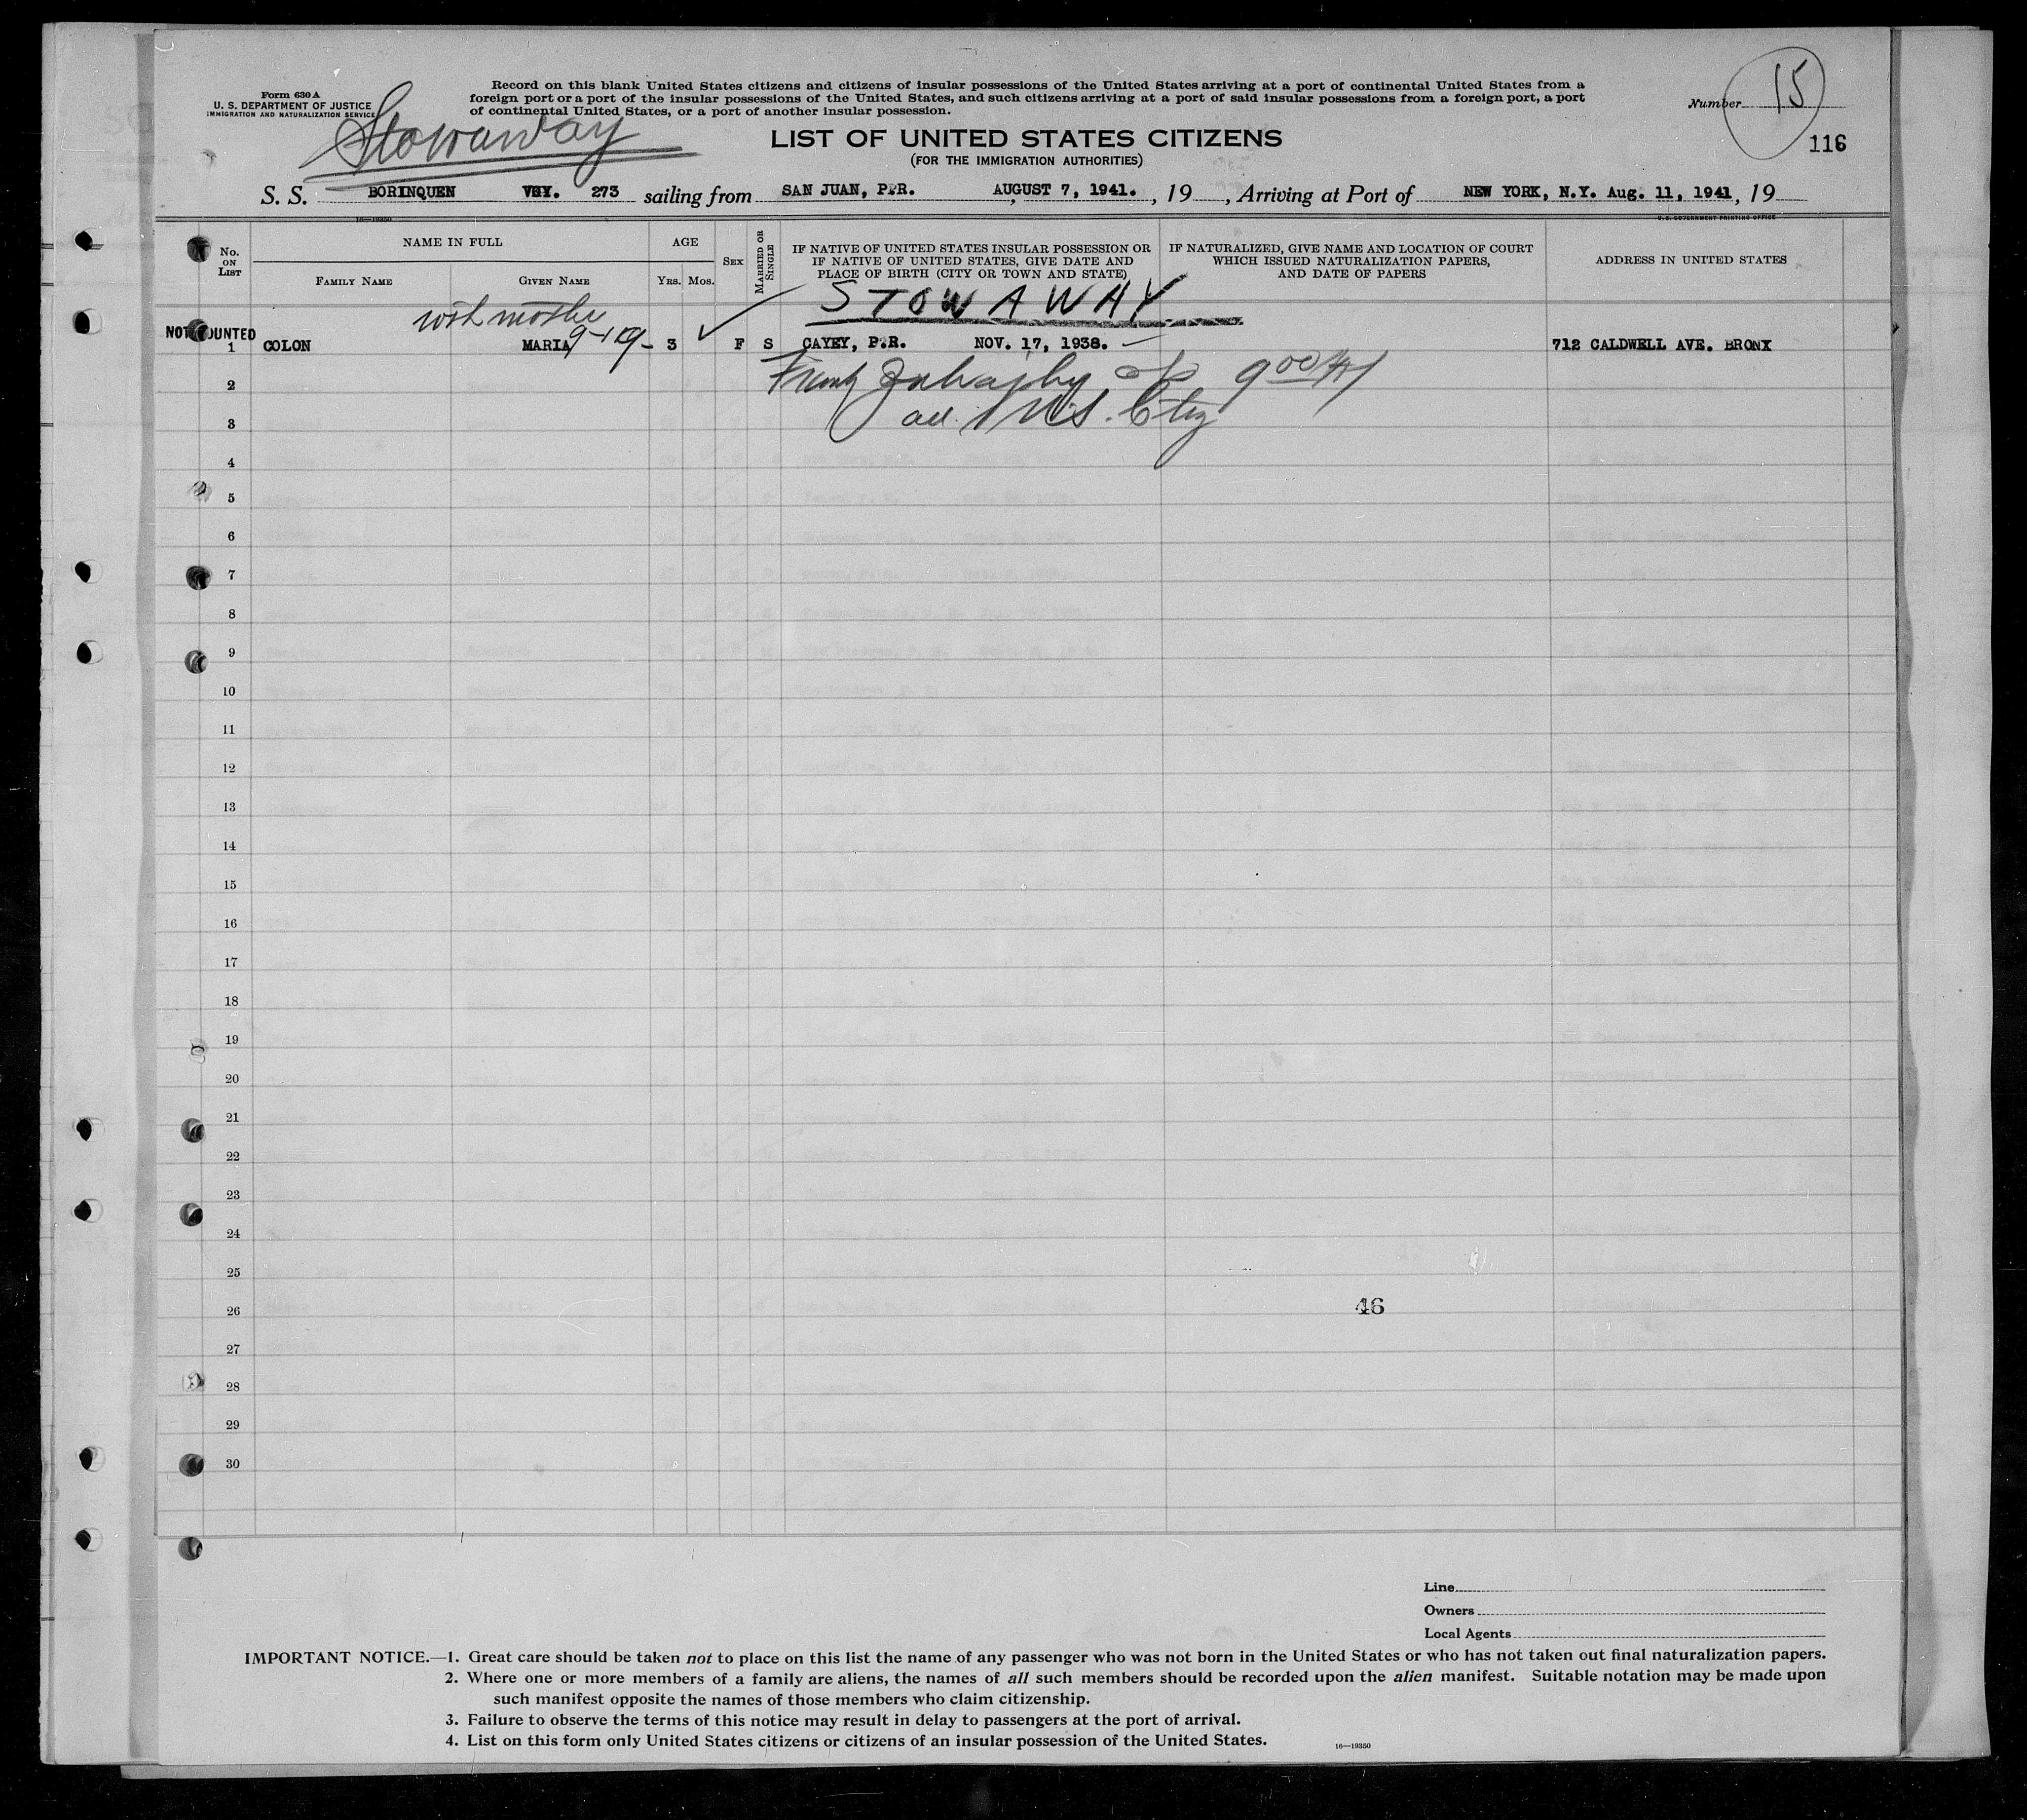 Form 630 A
U. S. DEPARTMENT OF JUSTICE
IMMIGRATION AND NATURALIZATION SERVICE
Stowaway
Record on this blank United States citizens and citizens of insular possessions of the United States arriving at a port of continental United States from a
foreign port or a port of the insular possessions of the United States, and such citizens arriving at a port of said insular possessions from a foreign port, a port
of continental United States, or a port of another insular possession.
Number 15
116
LIST OF UNITED STATES CITIZENS
(FOR THE IMMIGRATION AUTHORITIES)
S. S. BORINQUEN VGY. 273 sailing from SAN JUAN, P.R. AUGUST 7, 1941. , 19 , Arriving at Port of NEW YORK, N.Y. Aug. 11, 1941, 19
16—19350
U.S. GOVERNMENT PRINTING OFFICE
No. ON LIST
NAME IN FULL
FAMILY NAME
GIVEN NAME
AGE
YRS. MOS.
SEX
MARRIED OR SINGLE
IF NATIVE OF UNITED STATES INSULAR POSSESSION OR
IF NATIVE OF UNITED STATES, GIVE DATE AND
PLACE OF BIRTH (CITY OR TOWN AND STATE)
IF NATURALIZED, GIVE NAME AND LOCATION OF COURT
WHICH ISSUED NATURALIZATION PAPERS,
AND DATE OF PAPERS
ADDRESS IN UNITED STATES
with mother
STOWAWAY
1 COLON MARIA 3 F S CAYEY, P.R. NOV. 17, 1938. 712 CALDWELL AVE. BRONX
2 9 00
3 U.S.
4
5
6
7
8
9
10
11
12
13
14
15
16
17
18
19
20
21
22
23
24
25
26 46
27
28
29
30
Line
Owners
Local Agents
IMPORTANT NOTICE.—1. Great care should be taken not to place on this list the name of any passenger who was not born in the United States or who has not taken out final naturalization papers.
2. Where one or more members of a family are aliens, the names of all such members should be recorded upon the alien manifest. Suitable notation may be made upon
such manifest opposite the names of those members who claim citizenship.
3. Failure to observe the terms of this notice may result in delay to passengers at the port of arrival.
4. List on this form only United States citizens or citizens of an insular possession of the United States.
16—19350